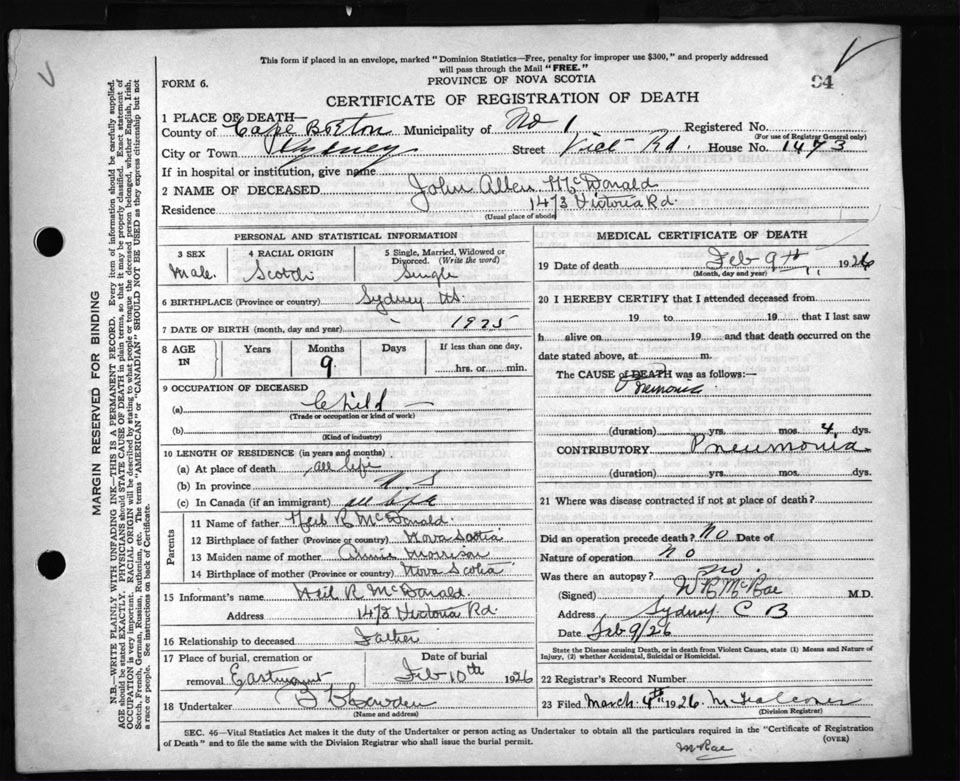 This form if placed in an envelope, marked "Dominion Statistics—Free, penalty for improper use $300," and properly addressed
will pass through the Mail "FREE."
FORM 6.
PROVINCE OF NOVA SCOTIA
94
CERTIFICATE OF REGISTRATION OF DEATH
1 PLACE OF DEATH—
County of Cape Breton Municipality of No 1 Registered No.
(For use of Registrar General only)
City or Town Sydney Street Vict Rd. House No. 1473
If in hospital or institution, give name
2 NAME OF DECEASED John Allen McDonald
Residence 1473 Victoria Rd.
(Usual place of abode)
PERSONAL AND STATISTICAL INFORMATION
3 SEX 4 RACIAL ORIGIN 5 Single, Married, Widowed or
Divorced. (Write the word)
Male. Scotch Single
6 BIRTHPLACE (Province or country) Sydney NS.
7 DATE OF BIRTH (month, day and year) - 1925
8 AGE IN Years Months Days If less than one day,
9 hrs. or min.
9 OCCUPATION OF DECEASED
(a) Child —
(Trade or occupation or kind of work)
(b)
(Kind of industry)
10 LENGTH OF RESIDENCE (in years and months)
(a) At place of death all life
(b) In province N. S
(c) In Canada (if an immigrant) all life
Parents
11 Name of father Neil R McDonald.
12 Birthplace of father (Province or country) Nova Scotia
13 Maiden name of mother Annie Morrison
14 Birthplace of mother (Province or country) Nova Scotia
15 Informant's name Neil R McDonald.
Address 1473 Victoria Rd.
16 Relationship to deceased Father
17 Place of burial, cremation or Date of burial
removal Eastmount Feb 10th 1926
18 Undertaker
(Name and address)
MEDICAL CERTIFICATE OF DEATH
19 Date of death Feb 9th, 1926
(Month, day and year)
20 I HEREBY CERTIFY that I attended deceased from
19 to 19 that I last saw
h alive on 19 and that death occurred on the
date stated above, at m.
The CAUSE of DEATH was as follows:—
(duration) yrs. mos. 4 dys.
CONTRIBUTORY Pneumonia
(duration) yrs. mos. dys.
21 Where was disease contracted if not at place of death?
Did an operation precede death? No Date of
Nature of operation no
Was there an autopsy? no.
(Signed) W R McRae M.D.
Address Sydney C B
Date Feb 9/26
State the Disease causing Death, or in death from Violent Causes, state (1) Means and Nature of
Injury, (2) whether Accidental, Suicidal or Homicidal.
22 Registrar's Record Number
23 Filed March 4th 1926.
(Division Registrar)
SEC. 46—Vital Statistics Act makes it the duty of the Undertaker or person acting as Undertaker to obtain all the particulars required in the "Certificate of Registration
of Death" and to file the same with the Division Registrar who shall issue the burial permit.
(OVER)
McRae
MARGIN RESERVED FOR BINDING
N.B.—WRITE PLAINLY WITH UNFADING INK—THIS IS A PERMANENT RECORD. Every item of information should be carefully supplied.
AGE should be stated EXACTLY. PHYSICIANS should STATE CAUSE OF DEATH in plain terms, so that it may be properly classified. Exact statement of
OCCUPATION is very important. RACIAL ORIGIN will be described by stating to what people or tongue the deceased person belonged, whether English, Irish,
Scotch, French, German, Russian, Ruthenian, etc. The terms "AMERICAN" or "CANADIAN" SHOULD NOT BE USED as they express citizenship but not
a race or people. See instructions on back of Certificate.